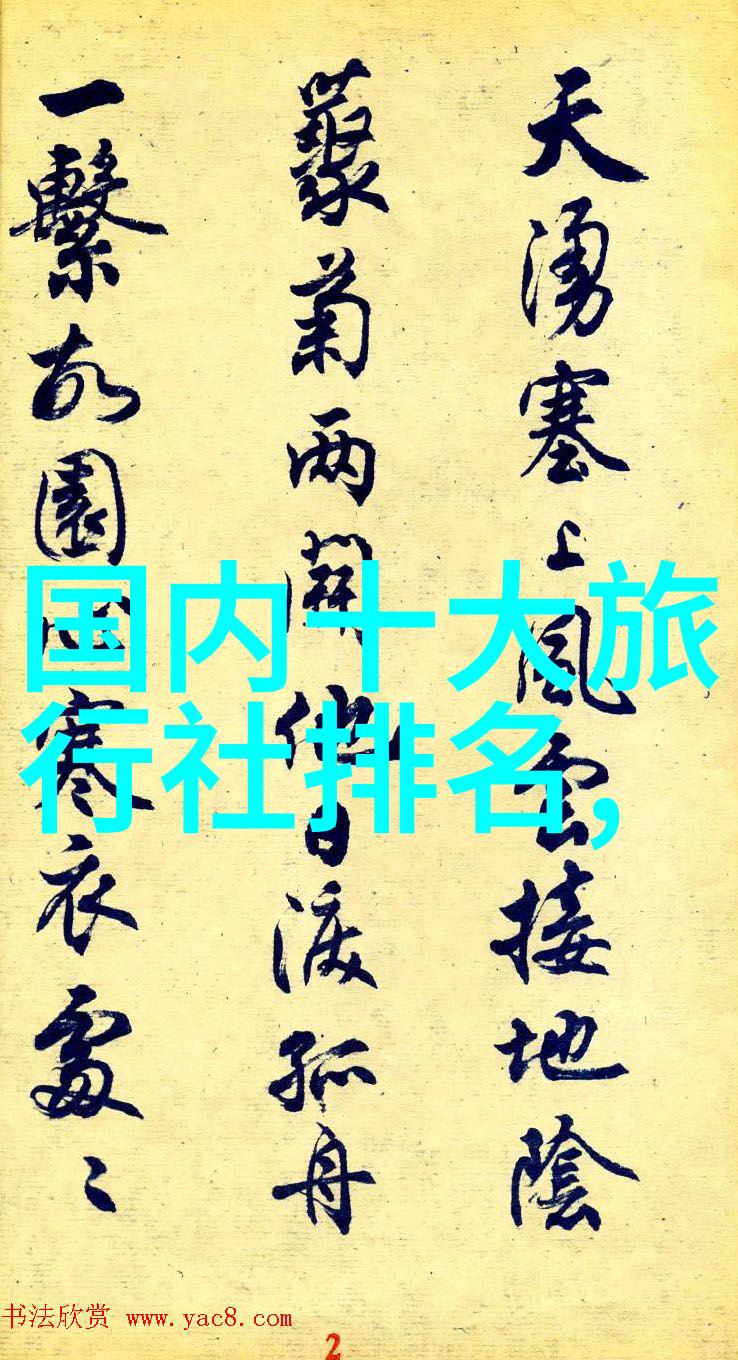 天湧塞上風雲接地陰
叢菊两開他日淚孤舟
一繫故園心寒衣處〻
国内十大旅
行社排名,
书法欣赏 www.yac8.com
2